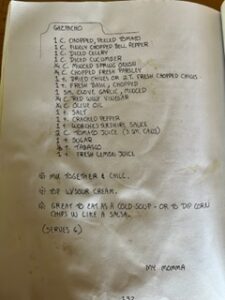 GAZPACHO
1 C. CHOPPED, PEELED TOMATO
1 C. FINELY CHOPPED BELL PEPPER
1 C. DICED CELERY
1 C. DICED CUCUMBER
¼ C. MINCED SPRING ONION
¼ C. CHOPPED FRESH PARSLEY
1 t. DRIED CHIVES OR 2 T. FRESH CHOPPED CHIVES
1 t. FRESH BASIL, CHOPPED
1 SM. CLOVE GARLIC, MINCED
¼ C. RED WINE VINEGAR
¼ C. OLIVE OIL
1 t. SALT
1 t. CRACKED PEPPER
1 t. WORCHESTERSHIRE SAUCE
2 C. TOMATO JUICE (3 SM. CANS)
1 t. SUGAR
t. TABASCO
1 t. FRESH LEMON JUICE
MIX TOGETHER & CHILL.
TOP W/ SOUR CREAM.
GREAT TO EAT AS A COLD SOUP - OR TO DIP CORN
CHIPS IN LIKE A SALSA.
(SERVES 6)
MY MOMMA
132